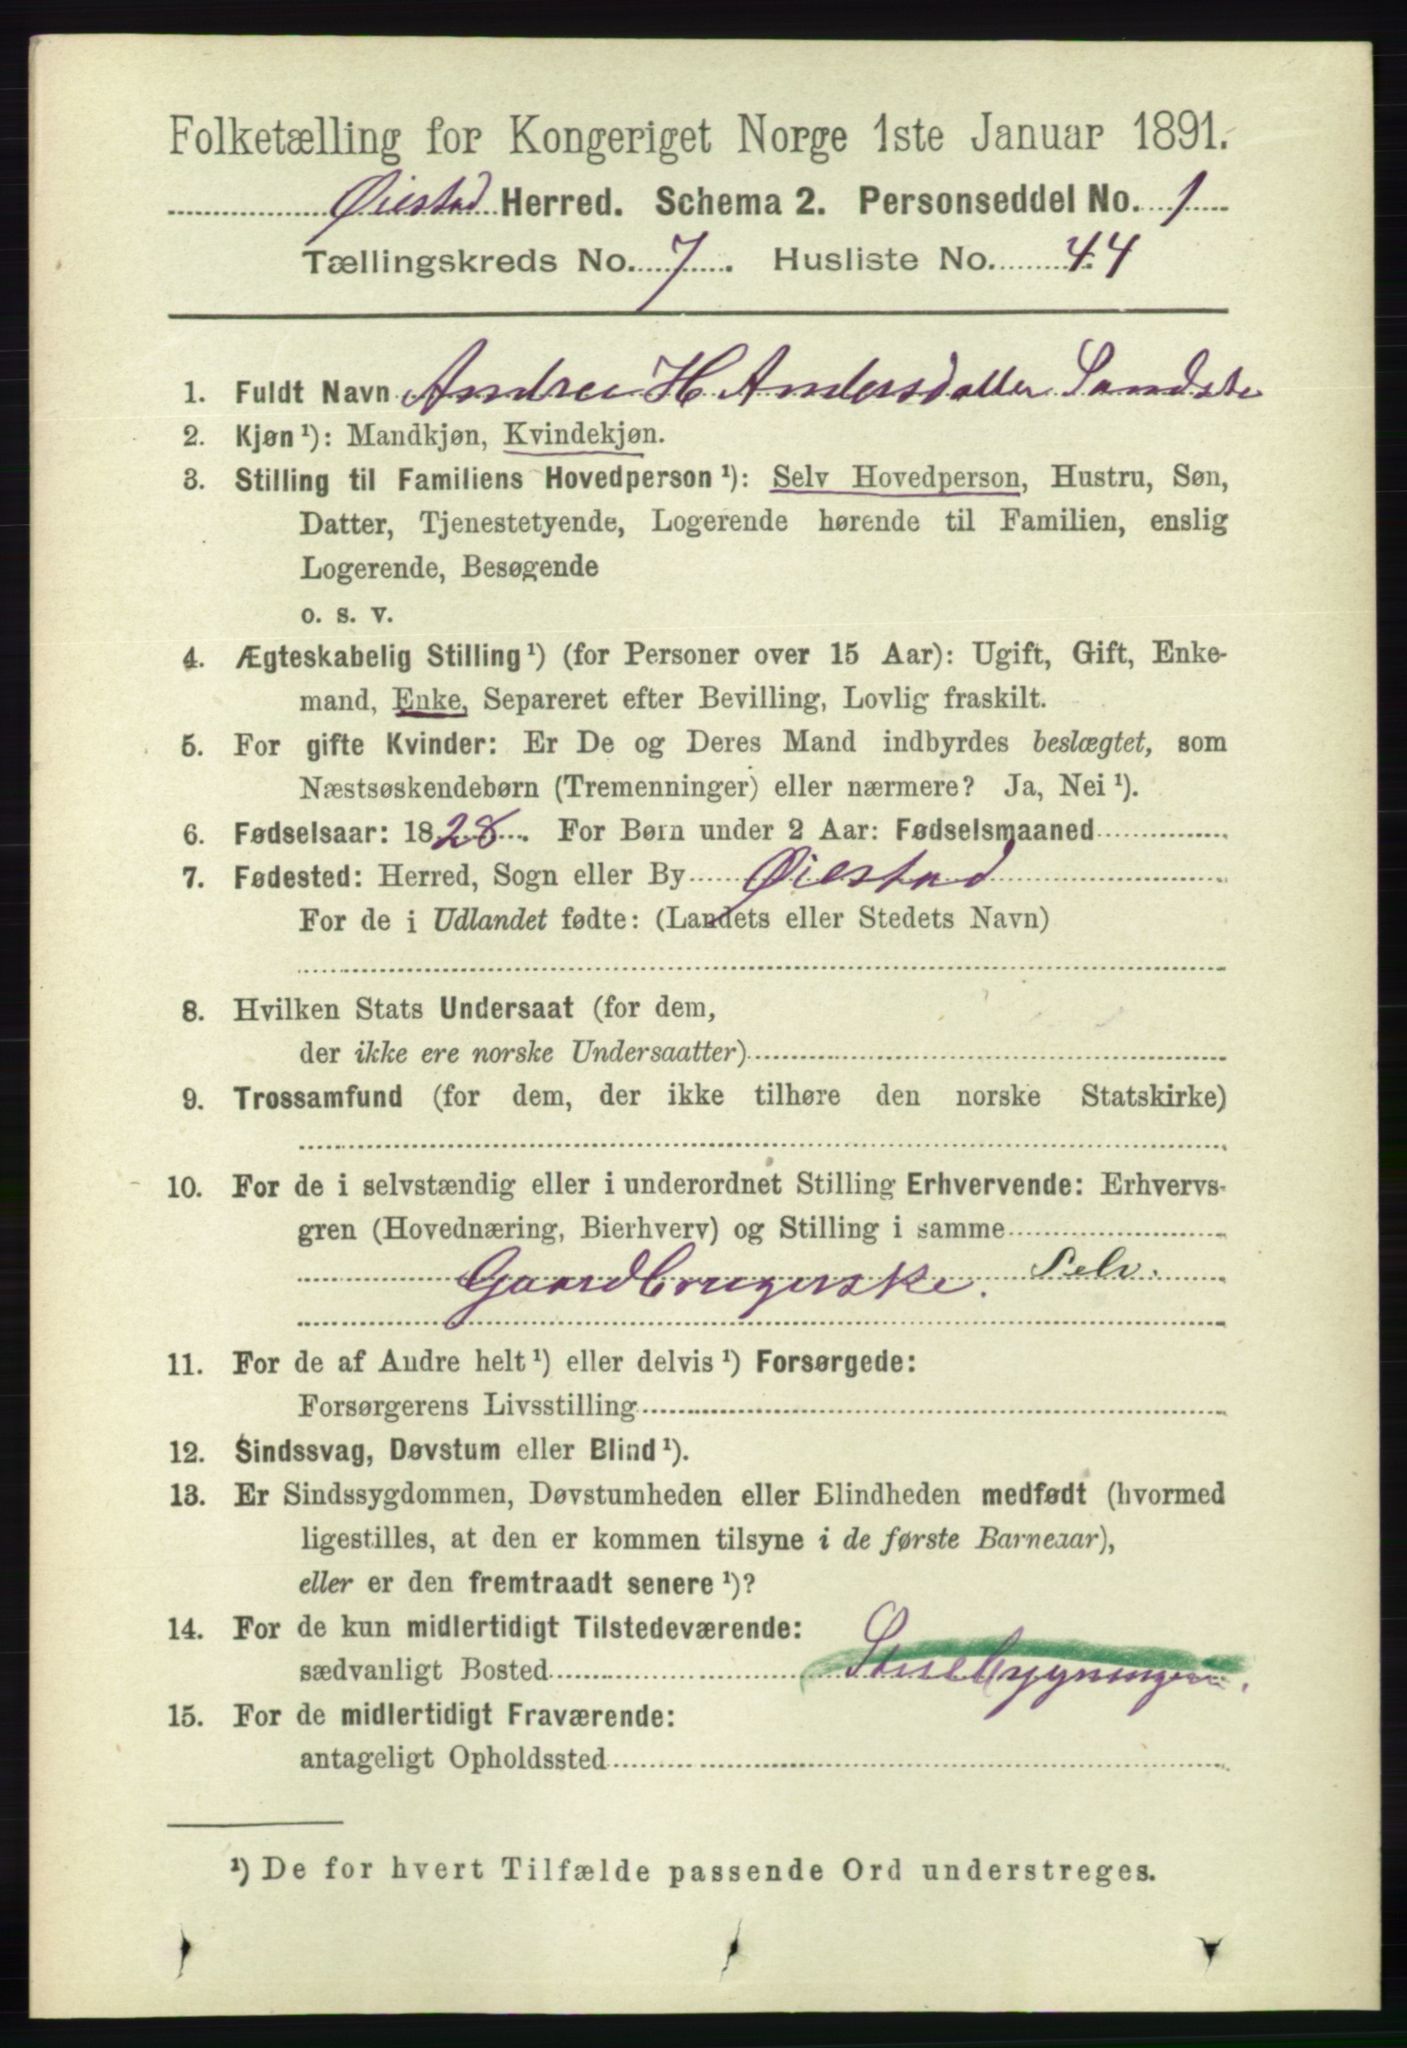 Folketælling for Kongeriget Norge 1ste Januar 1891.
Øiestad Herred. Schema 2. Personseddel No. 1
Tællingskreds No. 7. Husliste No. 44
1. Fuldt Navn Andrea H Andersdatter Sandste
2. Kjøn¹): Mandkjøn, Kvindekjøn.
3. Stilling til Familiens Hovedperson¹): Selv Hovedperson, Hustru, Søn,
Datter, Tjenestetyende, Logerende hørende til Familien, enslig
Logerende, Besøgende
o. s. v.
4. Ægteskabelig Stilling¹) (for Personer over 15 Aar): Ugift, Gift, Enke-
mand, Enke, Separeret efter Bevilling, Lovlig fraskilt.
5. For gifte Kvinder: Er De og Deres Mand indbyrdes beslægtet, som
Næstsøskendebørn (Tremenninger) eller nærmere? Ja, Nei¹).
6. Fødselsaar: 1828. For Børn under 2 Aar: Fødselsmaaned
7. Fødested: Herred, Sogn eller By Øiestad
For de i Udlandet fødte: (Landets eller Stedets Navn)
8. Hvilken Stats Undersaat (for dem,
der ikke ere norske Undersaatter)
9. Trossamfund (for dem, der ikke tilhøre den norske Statskirke)
10. For de i selvstændig eller i underordnet Stilling Erhvervende: Erhvervs-
gren (Hovednæring, Bierhverv) og Stilling i samme
Gaardbrugerske. Selv.
11. For de af Andre helt¹) eller delvis¹) Forsørgede:
Forsørgerens Livsstilling
12. Sindssvag, Døvstum eller Blind¹).
13. Er Sindssygdommen, Døvstumheden eller Blindheden medfødt (hvormed
ligestilles, at den er kommen tilsyne i de første Barneaar),
eller er den fremtraadt senere¹)?
14. For de kun midlertidigt Tilstedeværende:
sædvanligt Bosted Stuebygningen.
15. For de midlertidigt Fraværende:
antageligt Opholdssted
¹) De for hvert Tilfælde passende Ord understreges.